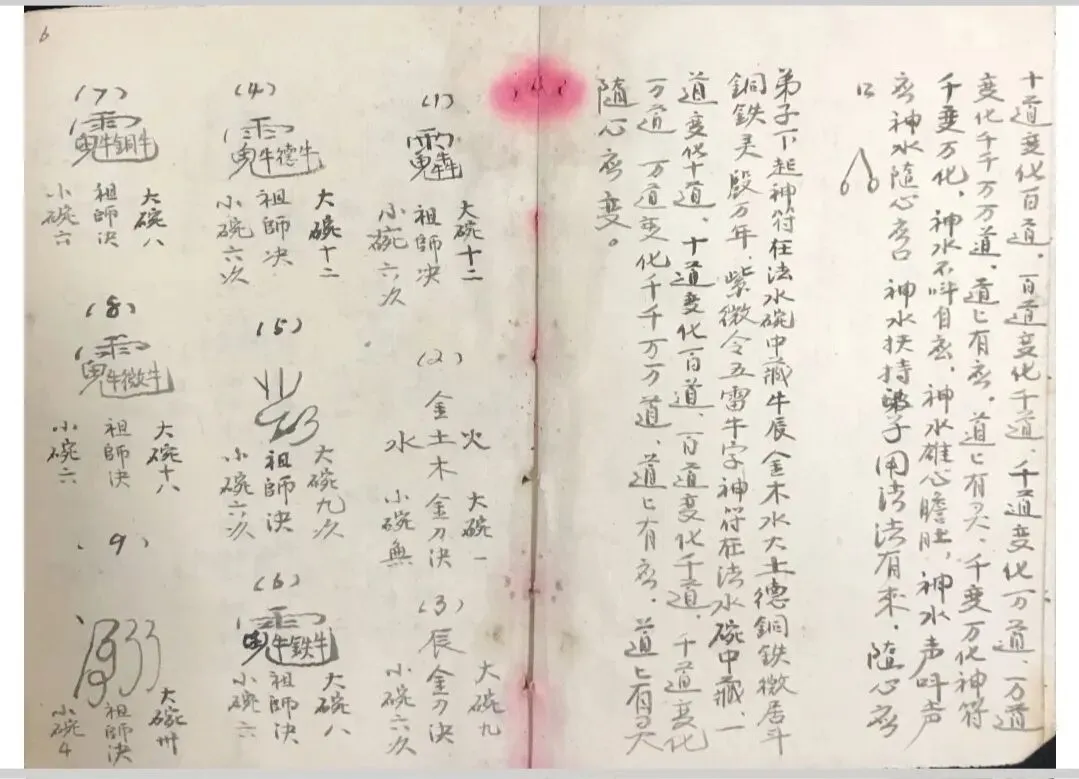 十道变化百道、百道变化千道、千道变化万道、一万道
变化千千万万道、道上有应、道上有灵、千变万化神符
千变万化、神水不叫自应、神水雄心胆壮、神水声叫声
应神水随心应口 神水扶持弟子用法法有来、随心应
口
弟子下起神符在法水碗中藏牛辰金木水火土德銅鉄微居斗
銅鉄灵殿万年、紫微令五雷牛字神符在法水碗中藏、一
道变化十道、十道变化百道、百道变化千道、千道变化
万道 万道变化千千万万道、道上有应、道上有灵
隨心应变。
(1)
大碗十二
祖師决
小碗六次
(2)
火
金土木金刀决
水
大碗一
小碗無
(3)
大碗九
辰金刀决
小碗六次
(4)
牛德牛
大碗十二
祖師决
小碗六次
(5)
大碗九次
祖師決
小碗六次
(6)
牛鉄牛
大碗八
祖師决
小碗六
(7)
牛銅牛
大碗八
祖師决
小碗六
(8)
牛微牛
大碗十八
祖師决
小碗六
9
大碗卅
祖師决
小碗4
6